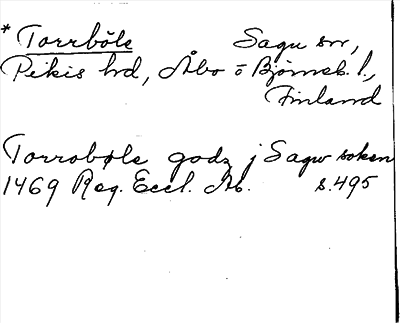 * Torrböle Sagu sn,
Pikis hrd, Åbo o Björneb. l.,
Finland
Torrobøle godz j Sagw soken
1469 Reg. Eccl. Ab. s.495